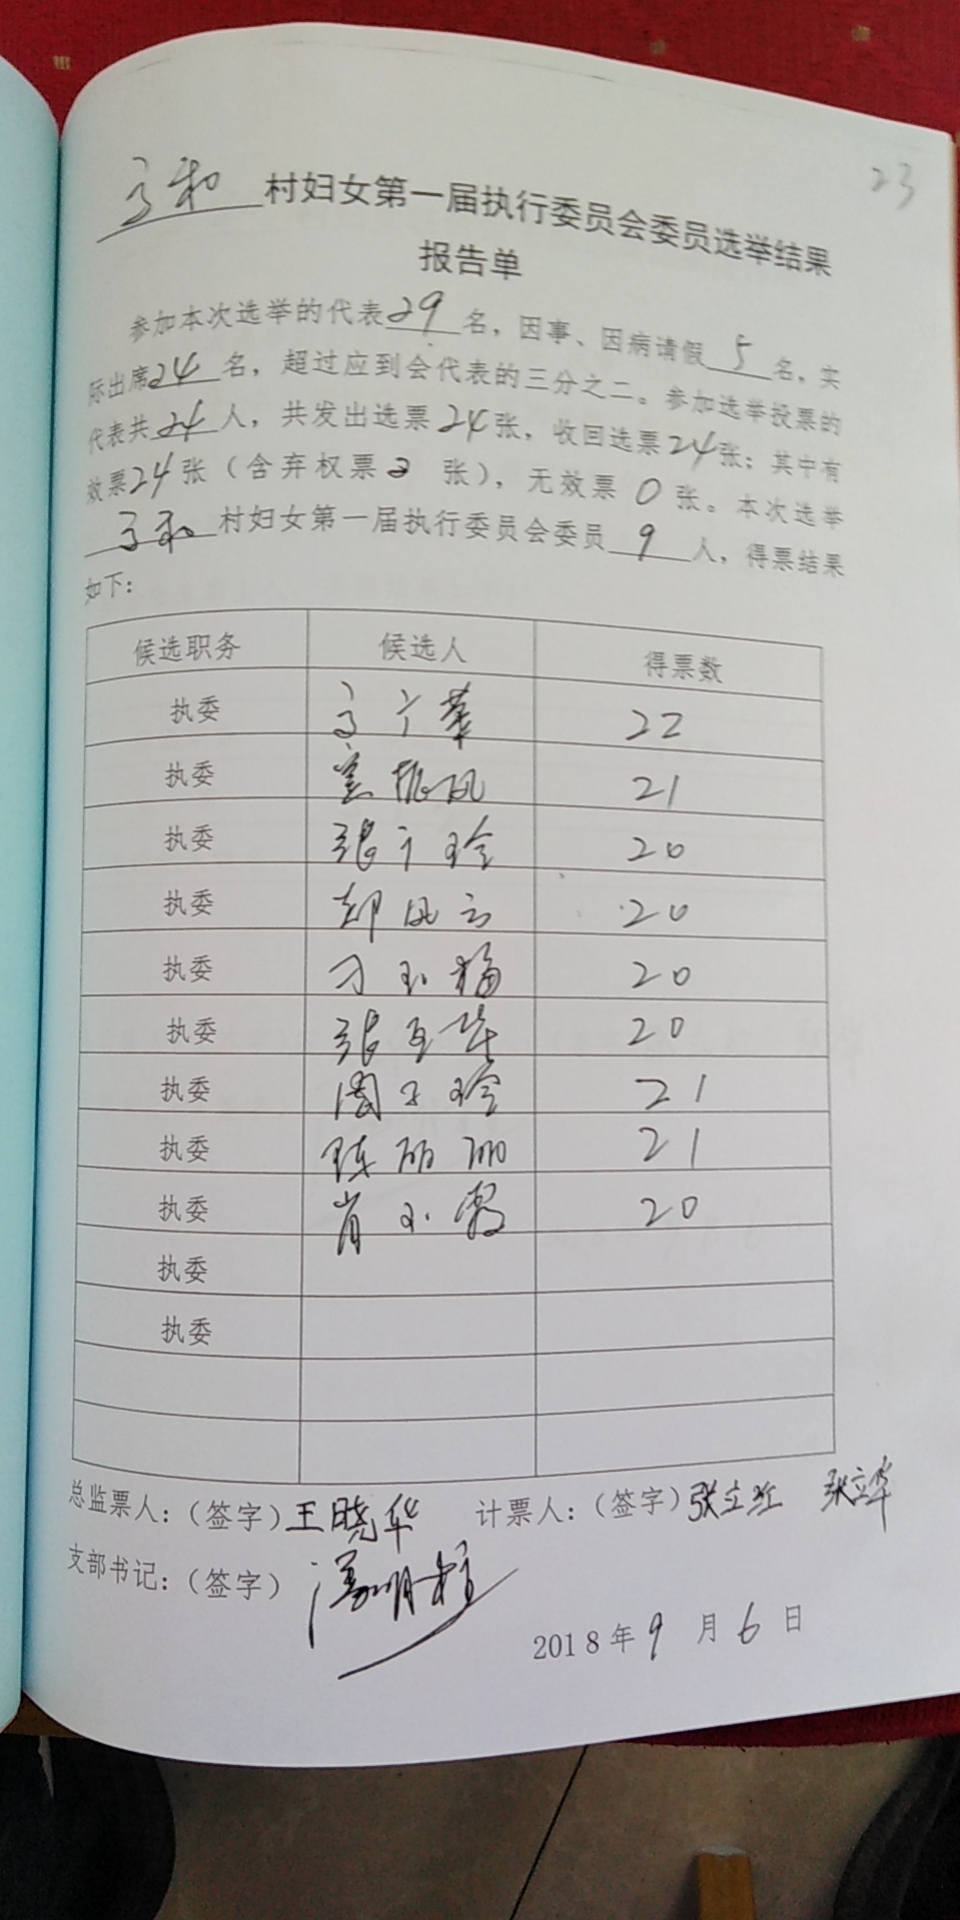 23
村妇女第一届执行委员会委员选举结果
报告单
参加本次选举的代表29名，因事、因病请假5名，实
际出席24名，超过应到会代表的三分之二。参加选举投票的
代表共24人，共发出选票24张，收回选票24张；其中有
效票24张（含弃权票2张），无效票0张。本次选举
村妇女第一届执行委员会委员9人，得票结果
如下：
候选职务 候选人 得票数
执委 22
执委 21
执委 张 玲 20
执委 凤云 20
执委 刁玉梅 20
执委 张玉华 20
执委 周玉玲 21
执委 陈丽丽 21
执委 肖玉霞 20
执委
执委
总监票人：（签字）王晓华 计票人：（签字）张立红 张立华
支部书记：（签字）
2018年9月6日